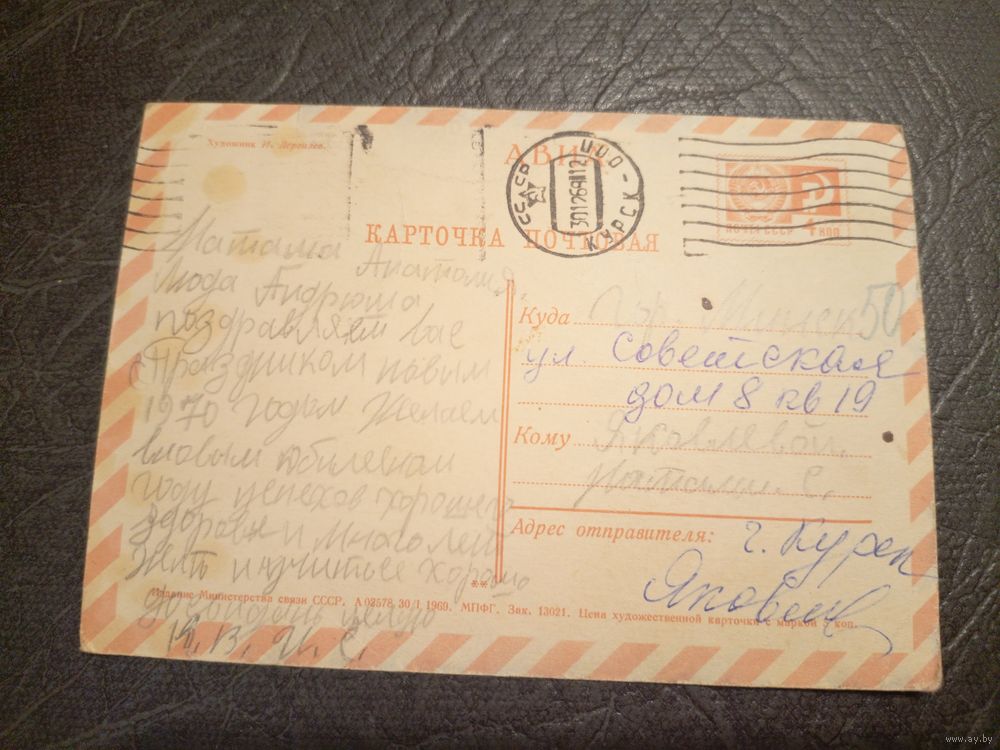 Художник И. Дергилев.
АВИА
СССР
ЦПО - КУРСК
301269 12
ПОЧТА СССР 4 КОП
КАРТОЧКА ПОЧТОВАЯ
Наташа Анатолия
Люда Андрюша
поздравляем вас
с праздником новым
1970 годом желаем
вновым юбилейном
году успехов хорошего
здоровя и много лет
жить и учиться хорошо
до свидань целую
Куда гор. Минск 50
ул. Советская
дом 8 кв 19
Кому Яковлевой
Наталии. С.
Адрес отправителя: г. Курск
**
Издание Министерства связи СССР. А 02578 30/I 1969. МПФГ. Зак. 13021. Цена художественной карточки с маркой 5 коп.
www.ay.by